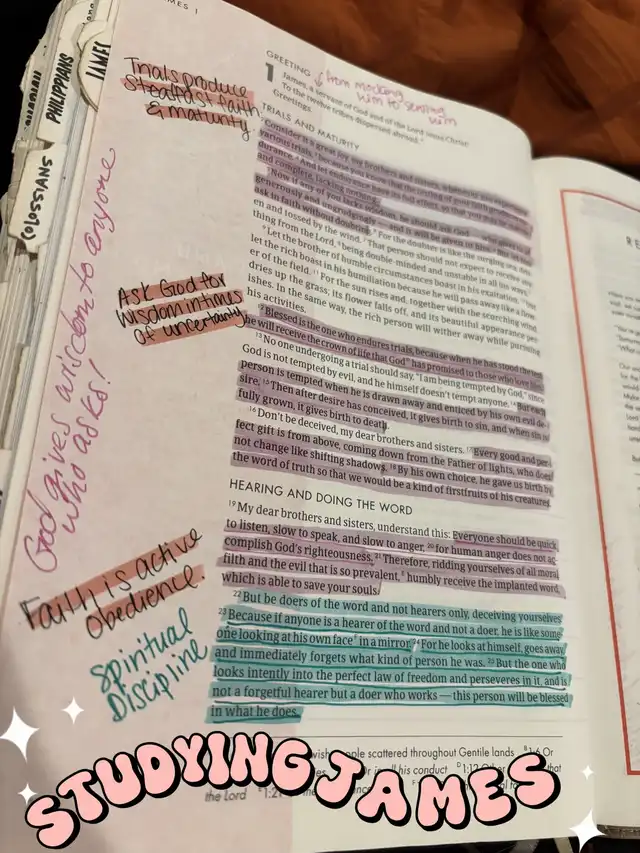 JAMES 1
PHILIPPIANS
JAMES
COLOSSIANS
Trials produce
steadfast faith
& maturity
Ask God for
wisdom in times
of uncertainty
God gives wisdom to anyone
who asks!
Faith is active
Obedience.
Spiritual
Discipline
GREETING
from mocking
him to serving
him
1 James, a servant of God and of the Lord Jesus Christ:
To the twelve tribes dispersed abroad.
Greetings.
TRIALS AND MATURITY
Consider it a great joy, my brothers and sisters, whenever you experience
various trials, because you know that the testing of your faith produces
durance. And let endurance have its full effect, so that you may be
and complete, lacking nothing.
Now if any of you lacks wisdom, he should ask God
generously and ungrudgingly and it will be given to him.
ask in faith without doubting. For the doubter is like the surging sea
en and tossed by the wind. That person should not expect to receive any
thing from the Lord, being double-minded and unstable in all his ways.
9 Let the brother of humble circumstances boast in his exaltation, but
let the rich boast in his humiliation because he will pass away like a flow
er of the field. 11 For the sun rises and, together with the scorching wind
dries up the grass; its flower falls off, and its beautiful appearance per
ishes. In the same way, the rich person will wither away while pursuing
his activities.
Blessed is the one who endures trials, because when he has stood the test
he will receive the crown of life that God has promised to those who love him.
13 No one undergoing a trial should say, "I am being tempted by God," since
God is not tempted by evil, and he himself doesn't tempt anyone. 14 But each
person is tempted when he is drawn away and enticed by his own evil de-
sire. 15 Then after desire has conceived, it gives birth to sin, and when sin is
fully grown, it gives birth to death.
16 Don't be deceived, my dear brothers and sisters. 17 Every good and per-
fect gift is from above, coming down from the Father of lights, who does
not change like shifting shadows. 18 By his own choice, he gave us birth by
the word of truth so that we would be a kind of firstfruits of his creatures.
HEARING AND DOING THE WORD
19 My dear brothers and sisters, understand this: Everyone should be quick
to listen, slow to speak, and slow to anger, 20 for human anger does not ac-
complish God's righteousness. 21 Therefore, ridding yourselves of all moral
filth and the evil that is so prevalent, humbly receive the implanted word,
which is able to save your souls.
22 But be doers of the word and not hearers only, deceiving yourselves.
23 Because if anyone is a hearer of the word and not a doer, he is like some
one looking at his own face in a mirror. 24 For he looks at himself, goes away,
and immediately forgets what kind of person he was. 25 But the one who
looks intently into the perfect law of freedom and perseveres in it, and is
not a forgetful hearer but a doer who works — this person will be blessed
in what he does.
people scattered throughout Gentile lands 1:6 Or
Or in all his conduct 1:12 Other that
the Lord 1:21
STUDYING JAMES